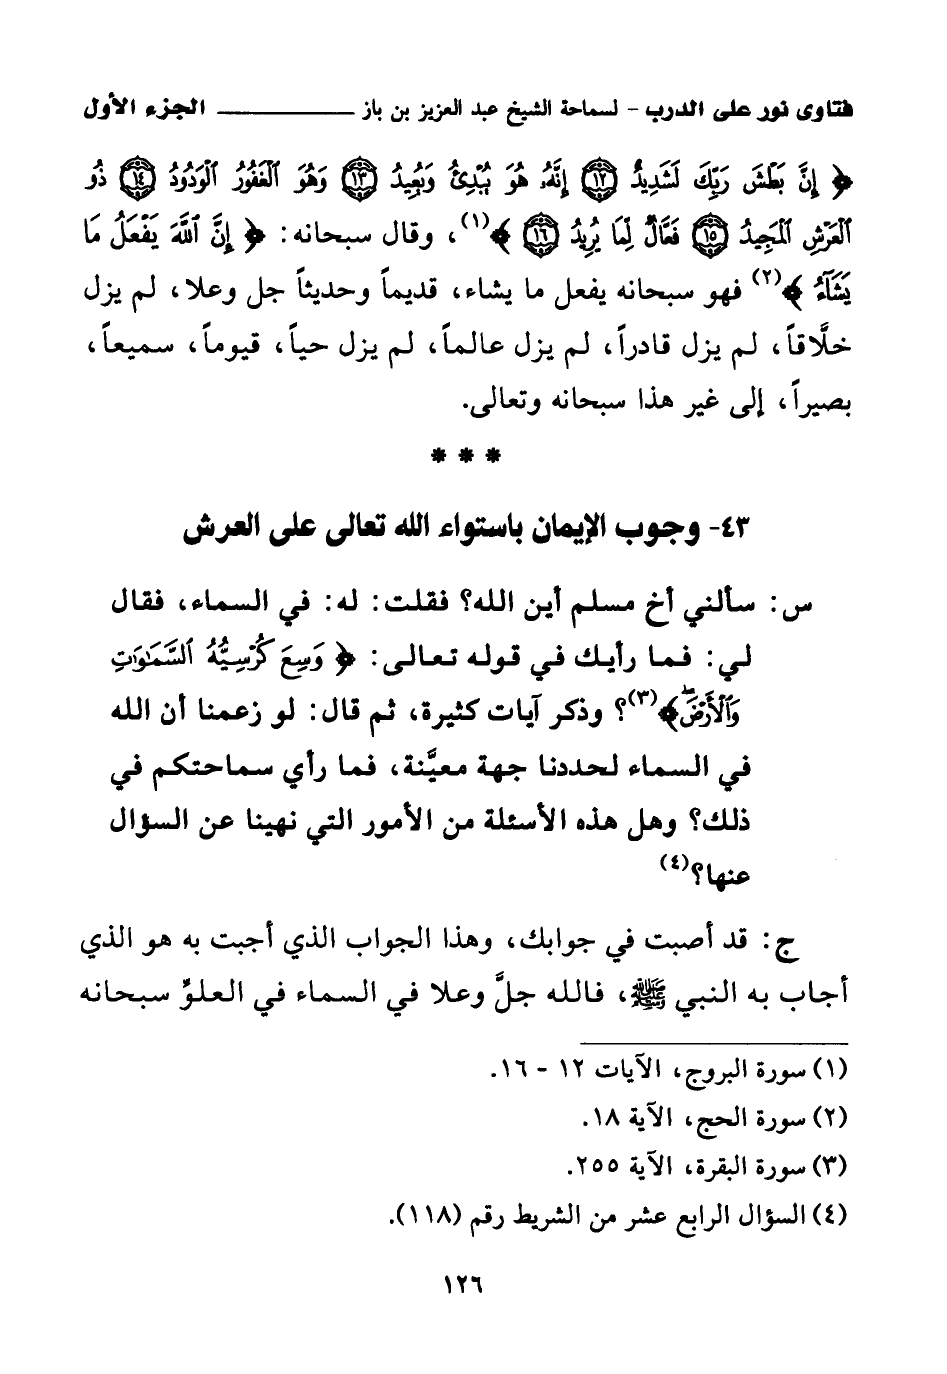 فتاوى نور على الدرب - لسماحة الشيخ عبد العزيز بن باز ــــــــــــ الجزء الأول
﴿ إِنَّ بَطْشَ رَبِّكَ لَشَدِيدٌ ۝١٢ إِنَّهُۥ هُوَ يُبْدِئُ وَيُعِيدُ ۝١٣ وَهُوَ ٱلْغَفُورُ ٱلْوَدُودُ ۝١٤ ذُو
ٱلْعَرْشِ ٱلْمَجِيدُ ۝١٥ فَعَّالٌ لِّمَا يُرِيدُ ۝١٦ ﴾(١)، وقال سبحانه: ﴿ إِنَّ ٱللَّهَ يَفْعَلُ مَا
يَشَآءُ ﴾(٢) فهو سبحانه يفعل ما يشاء، قديماً وحديثاً جل وعلا، لم يزل
خلَّاقاً، لم يزل قادراً، لم يزل عالماً، لم يزل حياً، قيوماً، سميعاً،
بصيراً، إلى غير هذا سبحانه وتعالى.
* * *
٤٣- وجوب الإيمان باستواء الله تعالى على العرش
س: سألني أخ مسلم أين الله؟ فقلت: له: في السماء، فقال
لي: فما رأيك في قوله تعالى: ﴿ وَسِعَ كُرْسِيُّهُ ٱلسَّمَٰوَٰتِ
وَٱلْأَرْضَۖ ﴾(٣)؟ وذكر آيات كثيرة، ثم قال: لو زعمنا أن الله
في السماء لحددنا جهة معيَّنة، فما رأي سماحتكم في
ذلك؟ وهل هذه الأسئلة من الأمور التي نهينا عن السؤال
عنها؟(٤)
ج: قد أصبت في جوابك، وهذا الجواب الذي أجبت به هو الذي
أجاب به النبي ﷺ، فالله جلَّ وعلا في السماء في العلوِّ سبحانه
(١) سورة البروج، الآيات ١٢ - ١٦.
(٢) سورة الحج، الآية ١٨.
(٣) سورة البقرة، الآية ٢٥٥.
(٤) السؤال الرابع عشر من الشريط رقم (١١٨).
١٢٦